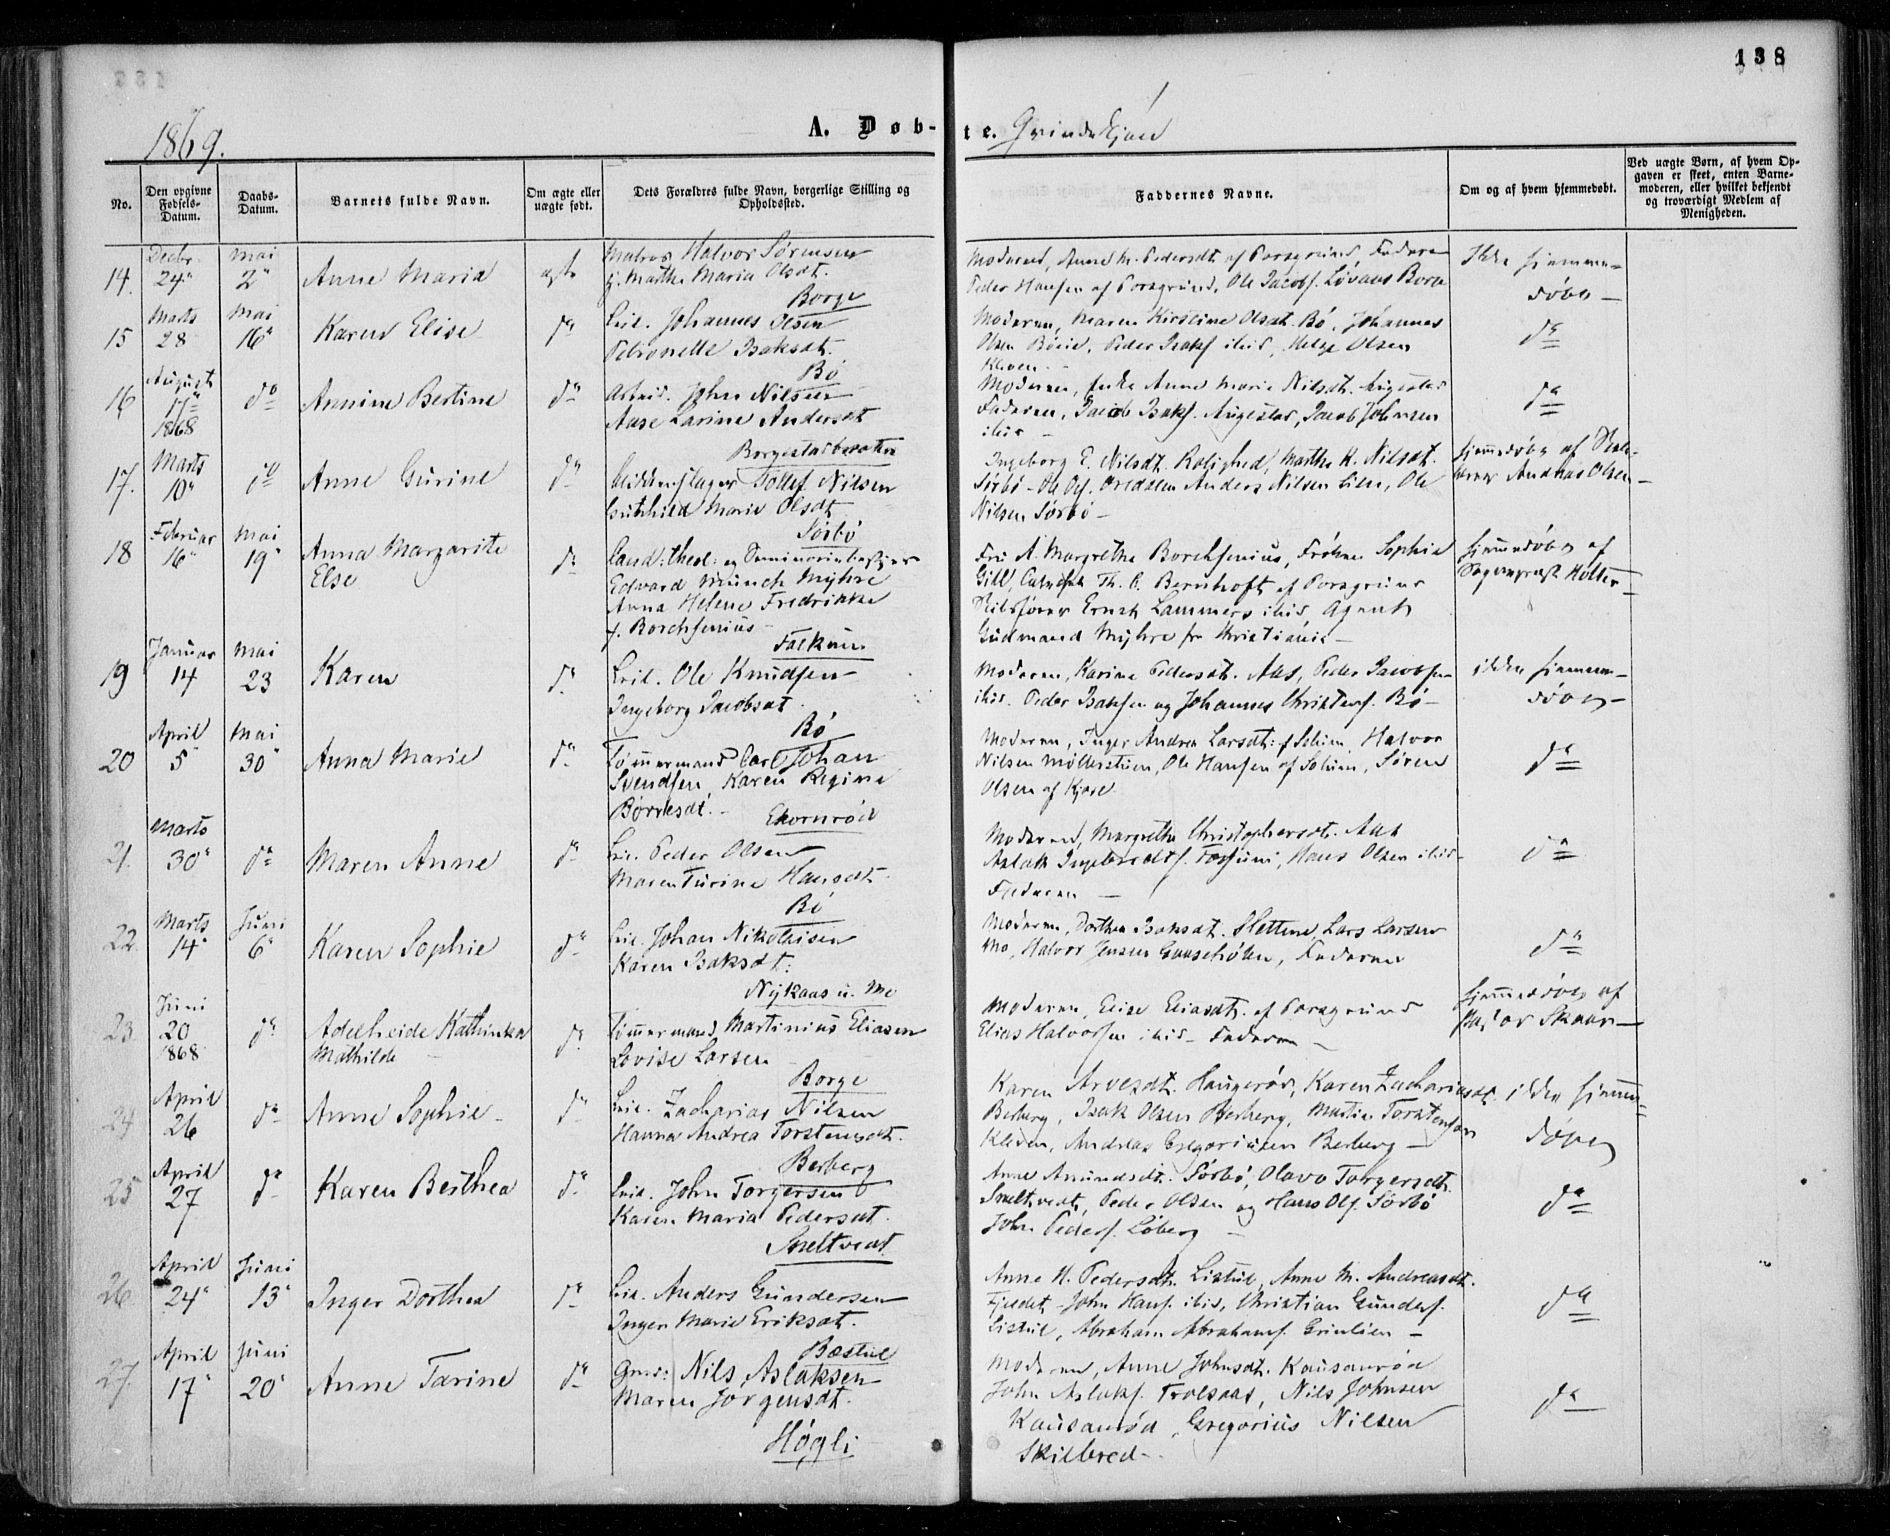 138
1869.
A. Døb-te. Qvindekjøn
No.
Den opgivne Fødsels-Datum.
Daabs-Datum.
Barnets fulde Navn.
Om ægte eller uægte født.
Dets Forældres fulde Navn, borgerlige Stilling og Opholdssted.
Faddernes Navne.
Om og af hvem hjemmedøbt.
Ved uægte Børn, af hvem Opgaven er skeet, enten Barnemoderen, eller hvilket bekjendt og troværdigt Medlem af Menigheden.
14. Decbr. 24" Mai 2" Anne Maria ægte
Matros Halvor Sørensen
Marthe Maria Olsdt.
Borge
Moderen, Anne M. Pedersdt af Porsgrund, Faderen
Peder Hansen af Porsgrund, Ole Jacobs. Borge
Ikke hjemme-
døbt
15 Marts 28 Mai 16" Karen Elise do
Leil. Johannes Olsen
Petronelle Isaksdt.
Bö
Moderen, Maren Kirstine Olsdt. Bö, Johannes
Olsen Peder Isaks. ibid, Helge Olsen
Kleven
do
16 August 17" 1868 do Annine Bertine do
Arbeid. John Nilsen
Aase Larine Andersdt
Borgestadbakken
Moderen, Anne Marie Nilsdt. Augestad
Faderen, Jacob Isaks. Augestad, Jacob Johnsen
ibid
do
17. Marts 10" do Anne Gurine do
Tollef Nilsen
Gunhild Marie Olsdt
Sörbö
Ingeborg E. Nilsdt. Rolighed, Marthe K. Nilsdt.
Sörbö - Ole Ols. Anders Nilsen Lien, Ole
Nilsen Sörbö
hjemmedøbt af
Andreas Olsen
18 Februar 16" Mai 19" Anna Margarite
Else do
Cand: theol: og Seminariebestyrer
Edvard Munch Myhre
Anna Helene Fredrikke
f. Borchsenius
Falkum
Fru A. Margrethe Borchsenius, Frøken Sophie
Gill, Th. C. Bernhoft af Porsgrund
Ernst Lammers ibid, Agent
Gudmand Myhre fra Christiania
hjemmedøbt af
Sogneprest Holter
19 Januar 14 Mai 23 Karen do
Leil. Ole Knudsen
Ingeborg Jacobsdt.
Bö
Moderen, Karine Pedersdt. Aas, Peder Jacobsen
ibid. Peder Isaksen og Johannes Christens. Bö
ikke hjemme-
døbt
20 April 5" Mai 30" Anna Marie do
Tømmermand Carl Johan
Svendsen, Karen Regine
Börresdt.
Ekornröd
Moderen, Inger Andrea Larsdt: af Solum, Halvor
Nilsen Möllerstuen, Ole Hansen af Solum, Sören
Olsen af
do
21. Marts 30" do Maren Anne do
Lei. Peder Olsen
Maren Turine Hansdt
Bö
Moderen, Margrethe Christophersdt. Aas
Aslak Ingebredts. Fossum, Hans Olsen ibid
Faderen
do
22 Marts 14" Juni 6" Karen Sophie do
Lei. Johan Nikolaisen
Karen Isaksdt:
Nykaas u. Mo
Moderen, Dorthea Isaksdt. Slettene, Lars Larsen
Mo, Halvor Jensen Gaasehölen, Faderen
do
23 Juni 20 1868 do Adelheide Kathinka
Mathilde do
Tømmermand Martinius Eliasen
Lovise Larsen
Borge
Moderen, Elise Eliasdt. af Porsgrund
Elias Halvorsen ibid - Faderen
hjemmedøbt af
Pastor Skaar
24 April 26 do Anne Sophie do
Lei. Zacharias Nilsen
Hanna Andrea Torstensdt.
Berberg
Karen Arvesdt. Haugeröd, Karen Zachariasdt.
Berberg, Isak Olsen Berberg, Martin Torstensen
Kleven, Andreas Gregoriusen Berberg
ikke hjemme-
døbt
25 April 27 do Karen Berthea do
Leil. John Torgersen
Karen Maria Pedersdt.
Sneltvedt
Anne Amundsdt. Sörbö, Olava Torgersdt.
Sneltvedt, Peder Olsen og Hans Ols. Sörbö
John Peders. Löberg
do
26 April 24" Juni 13" Inger Dorthea do
Lei. Anders Gundersen
Inger Marie Eriksdt.
Bæstul
Anne H. Pedersdt. Listul, Anne M. Andreasdt.
Fjeldet, John Hans. ibid, Christian Gunders.
Listul, Abraham Abrahams. Grinilien
do
27. April 17" Juni 20" Anne Tarine do
Gmd: Nils Aslaksen
Maren Jørgensdt.
Högli
Moderen, Anne Johnsdt. Kausanröd
John Aslaks. Trolsaas, Nils Johnsen
Kausanröd, Gregorius Nilsen
Skilbred
do